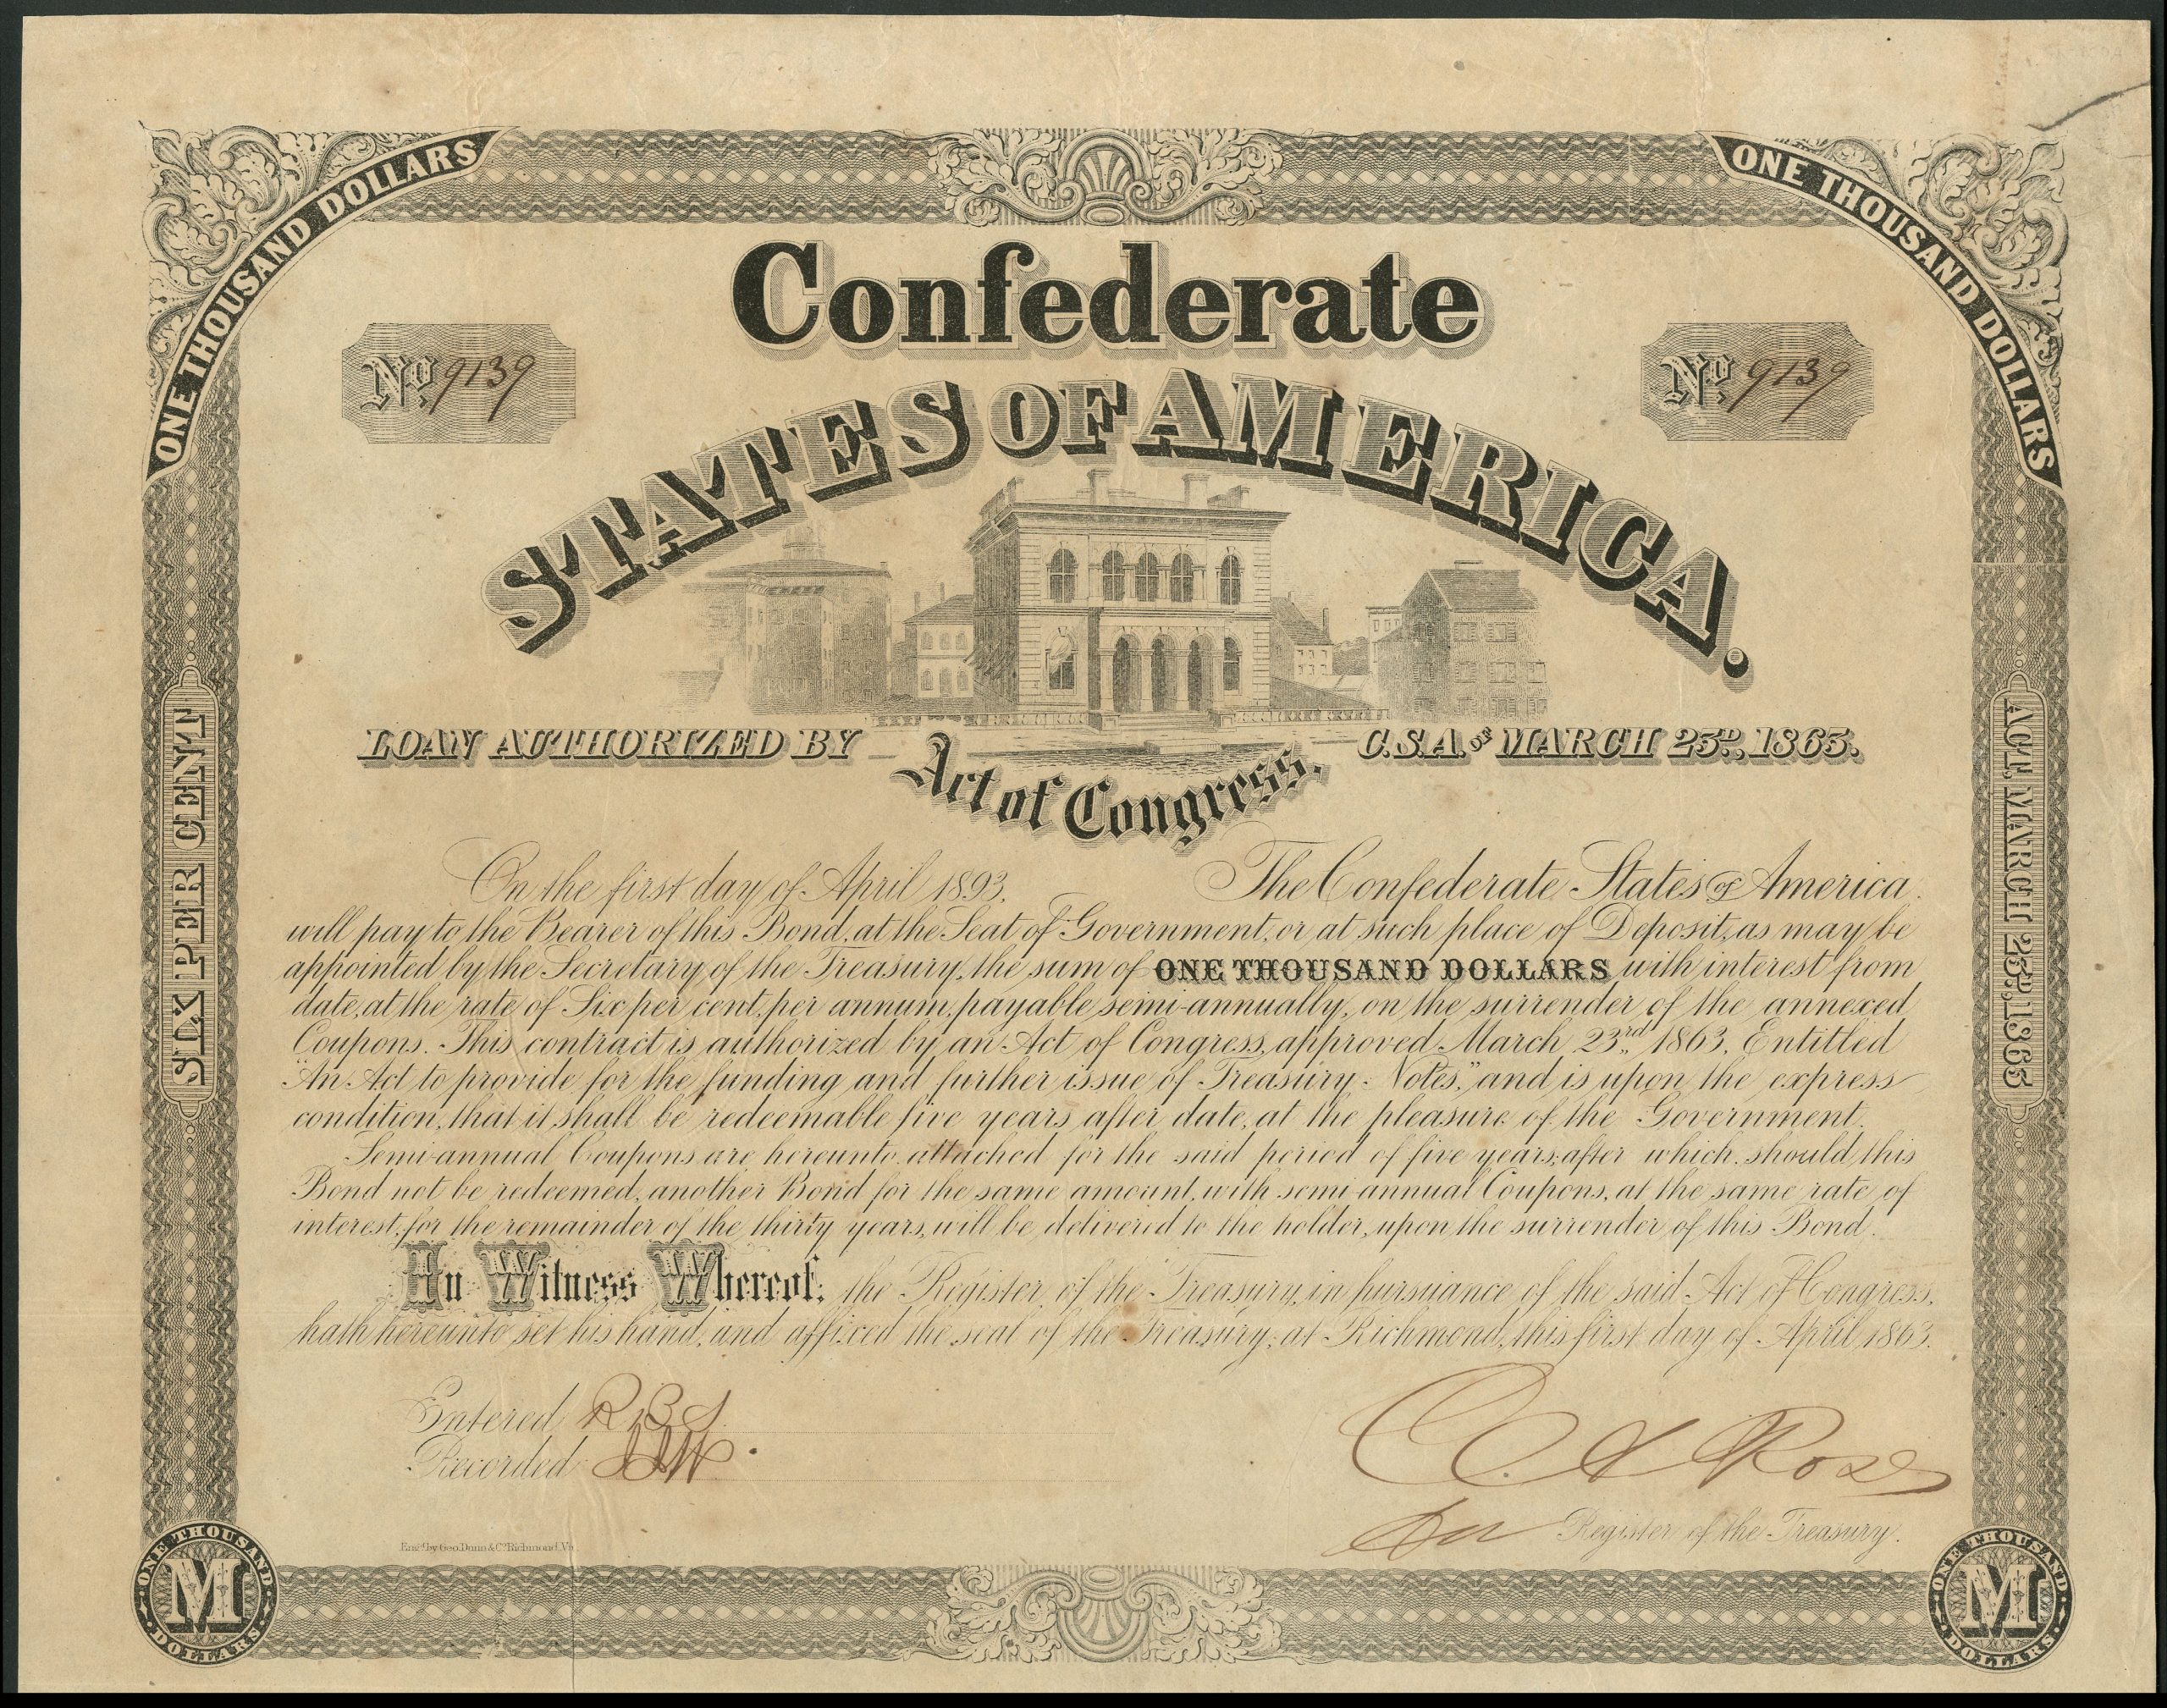 ONE THOUSAND DOLLARS
ONE THOUSAND DOLLARS
Confederate
No. 9139
No. 9139
STATES OF AMERICA.
LOAN AUTHORIZED BY
Act of Congress.
C.S.A. OF MARCH 23D., 1863.
SIX PER CENT
ACT, MARCH 23D., 1863
On the first day of April 1893, The Confederate States of America
will pay to the Bearer of this Bond, at the Seat of Government, or at such place of Deposit, as may be
appointed by the Secretary of the Treasury, the sum of ONE THOUSAND DOLLARS with interest from
date, at the rate of Six per cent, per annum, payable semi-annually, on the surrender of the annexed
Coupons. This contract is authorized by an Act of Congress, approved March 23rd., 1863, Entitled
"An Act to provide for the funding and further issue of Treasury-Notes," and is upon the express
condition, that it shall be redeemable five years after date, at the pleasure of the Government.
Semi-annual Coupons are hereunto attached for the said period of five years; after which, should this
Bond not be redeemed, another Bond for the same amount, with semi annual Coupons, at the same rate of
interest, for the remainder of the thirty years, will be delivered to the holder, upon the surrender of this Bond.
In Witness Whereof, the Register of the Treasury, in pursuance of the said Act of Congress,
hath hereunto set his hand, and affixed the seal of the Treasury, at Richmond, this first day of April 1863.
Entered
Recorded
C A Rose
for Register of the Treasury.
Engd. by Geo. Dunn & Co. Richmond, Va.
ONE THOUSAND
M
DOLLARS
ONE THOUSAND
M
DOLLARS